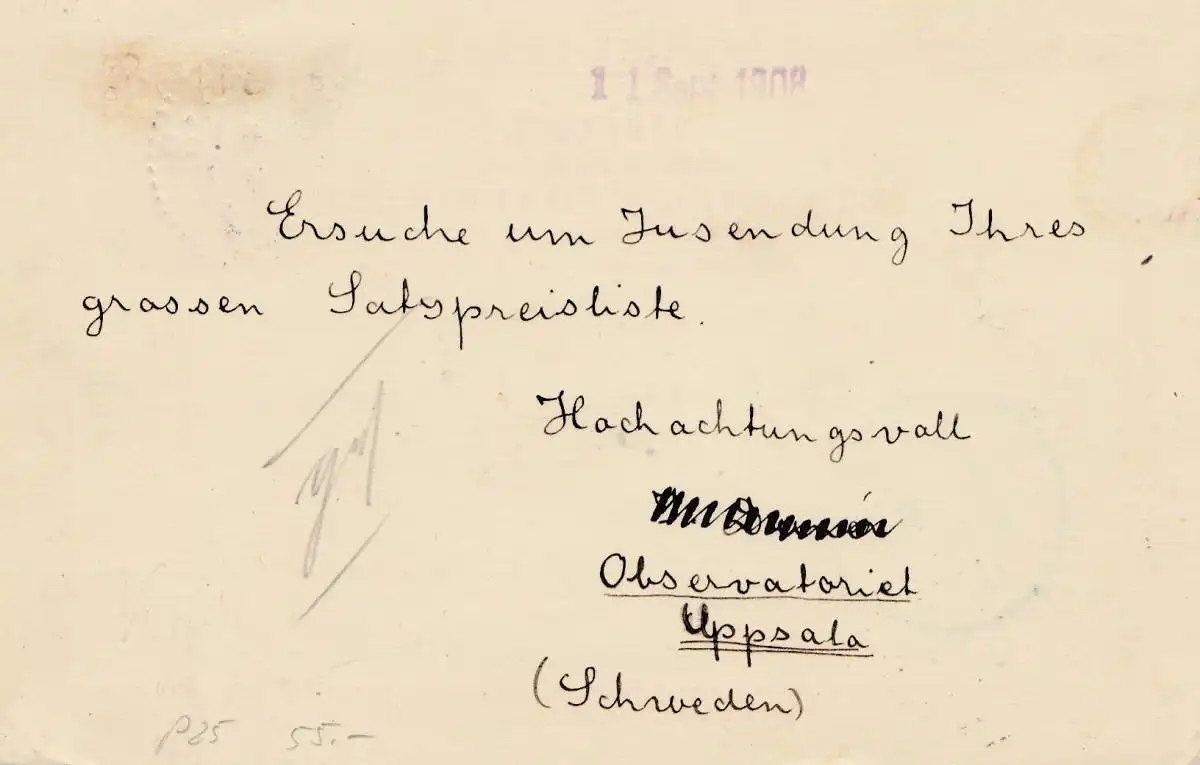 11 Sept 1908
Ersuche um Zusendung Ihres
grossen Satzpreisliste.
Hochachtungsvoll
Observatoriet
Uppsala
(Schweden)
P25 55.-